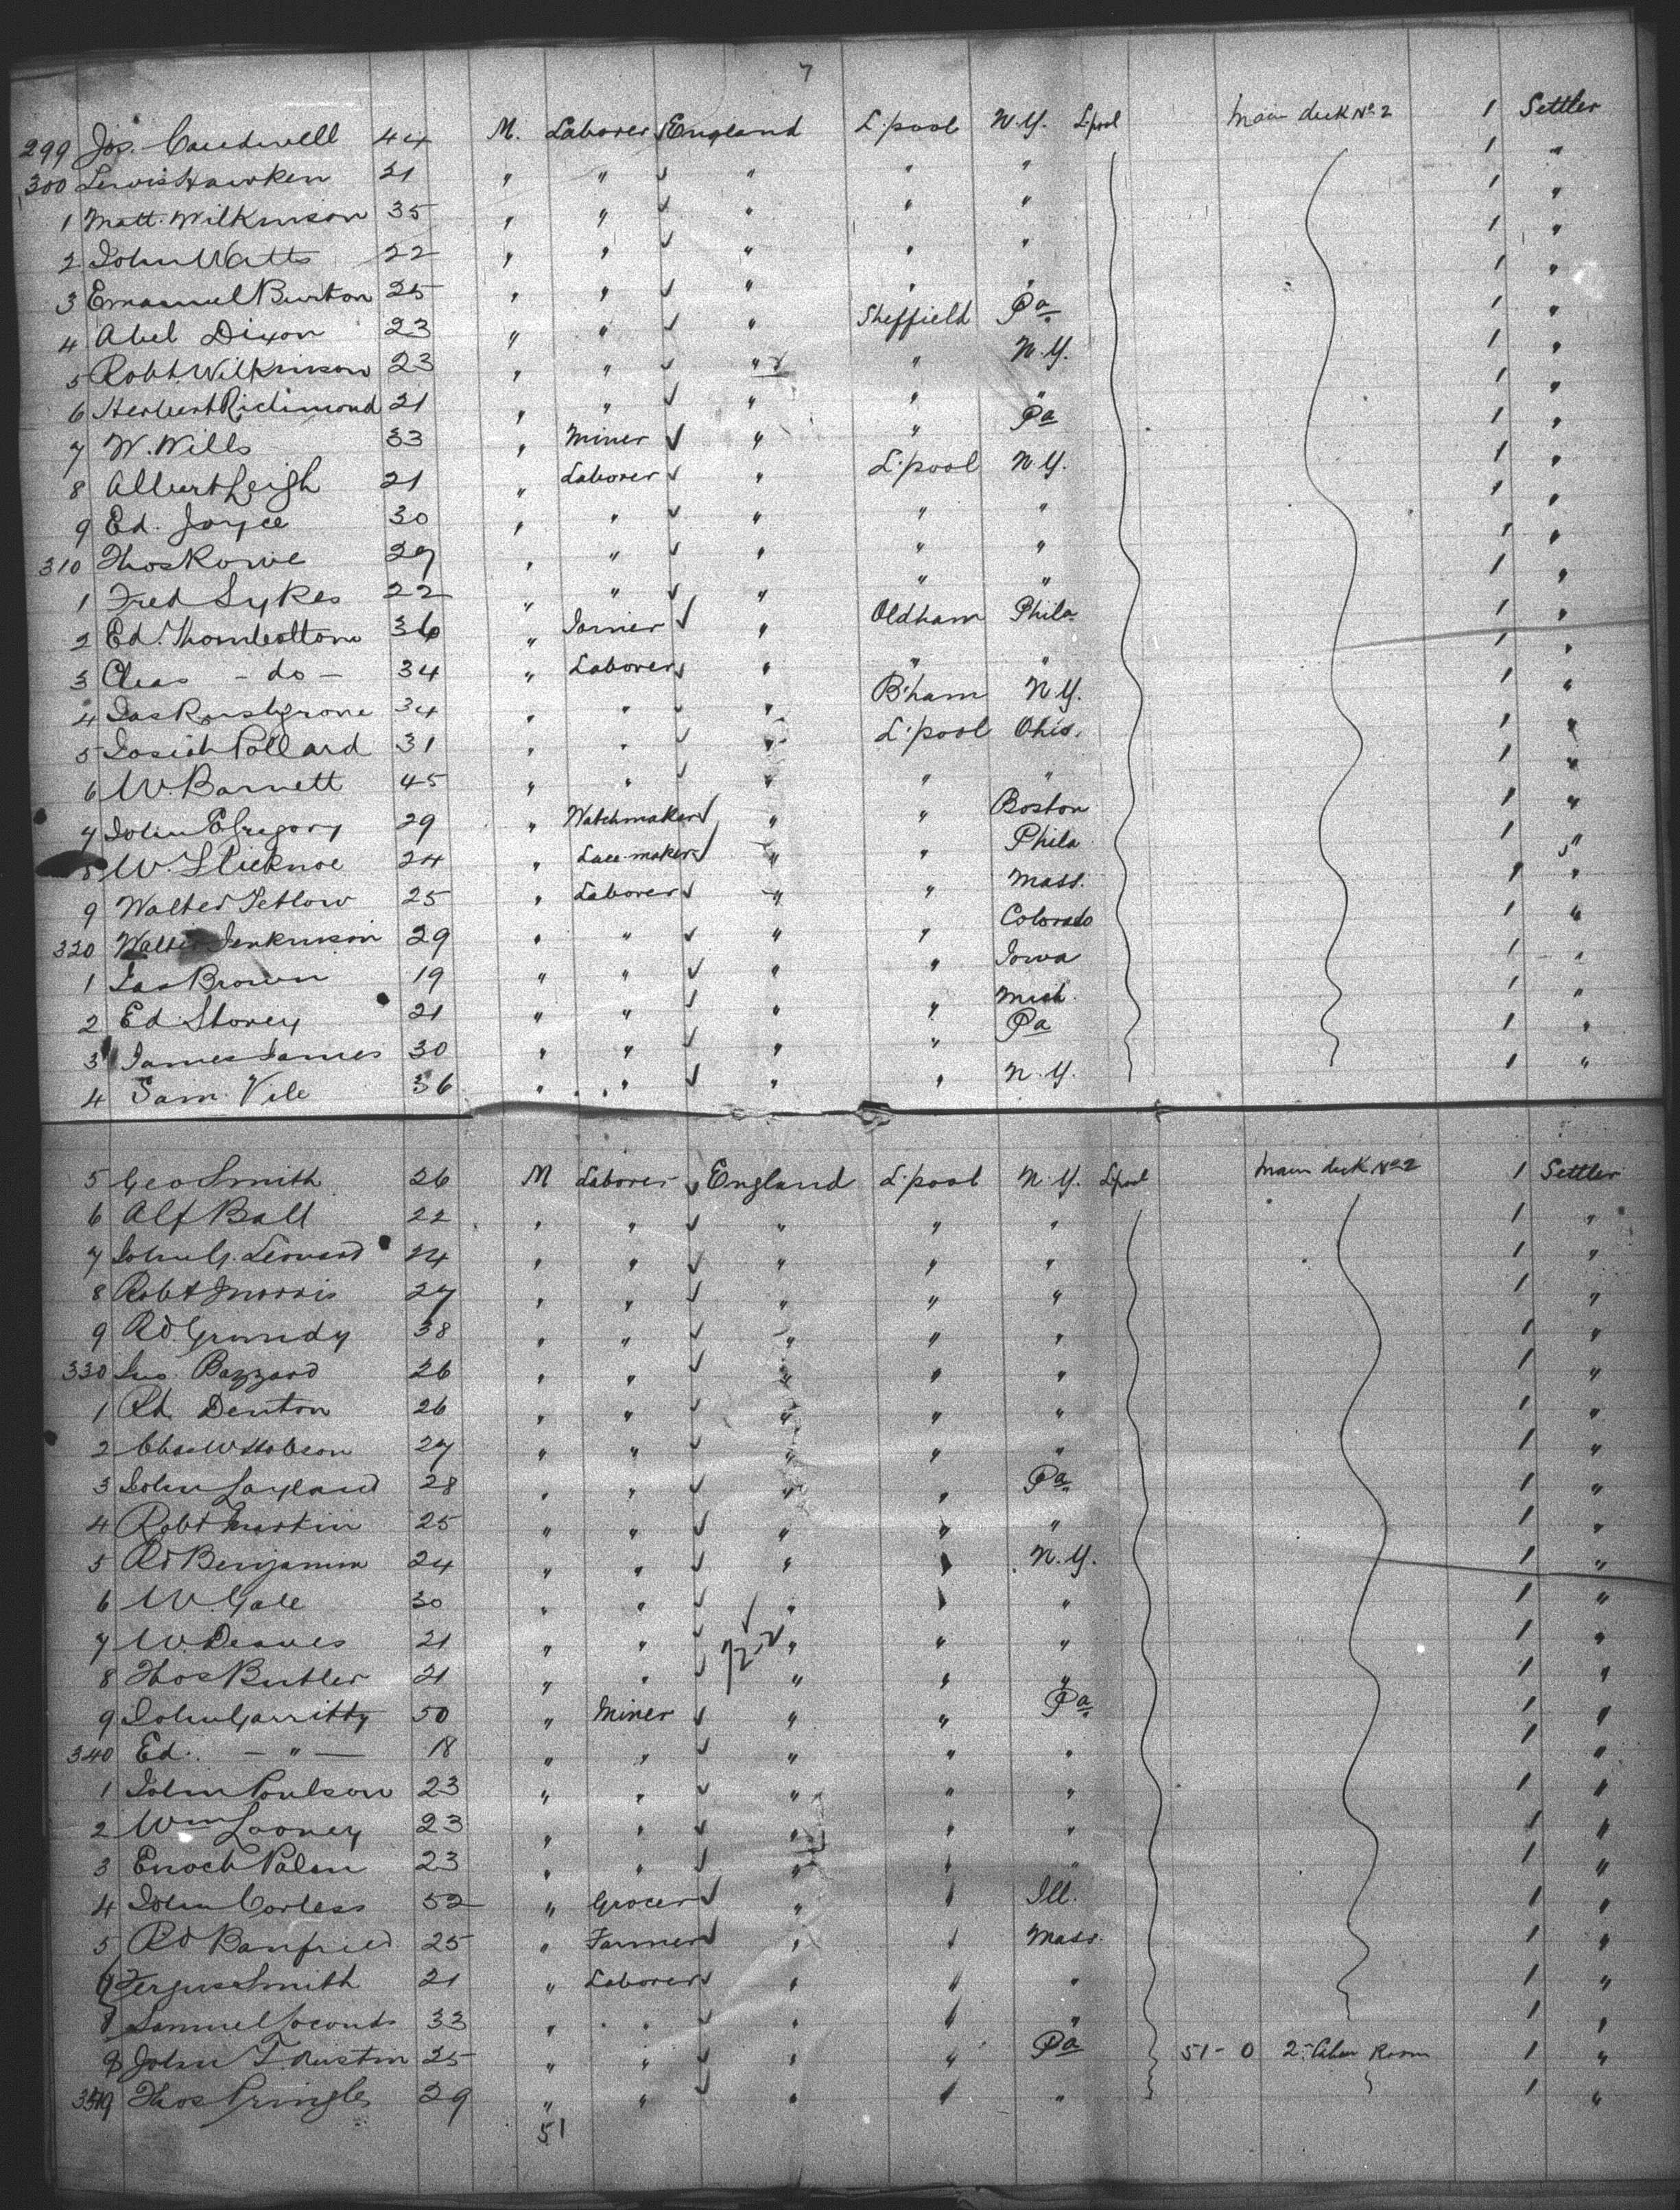 7
299 Jos. Caudwell 44 M. Laborer England L'pool N.Y. L'pool Main deck No 2 1 Settler
300 Lewis Hawken 21 " " " " " 1 "
1 Matt. Wilkinson 35 " " " " " 1 "
2 John Watts 22 " " " " " 1 "
3 Emanuel Burton 25 " " " " " 1 "
4 Abel Dixon 23 " " " Sheffield Pa 1 "
5 Robt. Wilkinson 23 " " " " N.Y. 1 "
6 Herbert Richmond 21 " " " " " 1 "
7 W. Wills 33 " Miner " " Pa 1 "
8 Albert Leigh 21 " Laborer " L'pool N.Y. 1 "
9 Ed. Joyce 30 " " " " " 1 "
310 Thos Rowe 29 " " " " " 1 "
1 Fred Sykes 22 " " " " " 1 "
2 Ed. Thornbottom 36 " Joiner " Oldham Phila 1 "
3 Chas - do - 34 " Laborer " " " 1 "
4 Jas 34 " " " B'ham N.Y. 1 "
5 Josiah Pollard 31 " " " L'pool Ohio. 1 "
6 W. Barnett 45 " " " " " 1 "
7 John E Gregory 29 " Watchmaker " " Boston 1 "
8 W. 24 " Lace-maker " " Phila 1 "
9 Walter Tetlow 25 " Laborer " " Mass. 1 "
320 Walter Jenkinson 29 " " " " Colorado 1 "
1 Jas Brown 19 " " " " Iowa 1 "
2 Ed Storey 21 " " " " Mich. 1 "
3 James James 30 " " " " Pa 1 "
4 Sam. Vile 36 " " " " N.Y. 1 "
5 Geo Smith 26 M Laborer England L'pool N.Y. L'pool Main deck No 2 1 Settler
6 Alf Ball 22 " " " " " 1 "
7 John G. Leonard 24 " " " " " 1 "
8 Robt Morris 27 " " " " " 1 "
9 Rd. Grundy 38 " " " " " 1 "
330 Jno. Bazzard 26 " " " " " 1 "
1 Rd. Denton 26 " " " " " 1 "
2 Chas W Hobson 27 " " " " " 1 "
3 John Layland 28 " " " " Pa 1 "
4 Robt Martin 25 " " " " " 1 "
5 Rd Benjamin 24 " " " " N.Y. 1 "
6 W. Gale 30 " " " " " 1 "
7 W. Deaves 21 " " " " " 1 "
8 Thos Butler 21 " " " " " 1 "
9 John Garritty 50 " Miner " " Pa 1 "
340 Ed. - " - 18 " " " " " 1 "
1 John Poulson 23 " " " " " 1 "
2 Wm Looney 23 " " " " " 1 "
3 Enoch Palin 23 " " " " " 1 "
4 John Corless 52 " Grocer " " Ill. 1 "
5 Rd Banfried 25 " Farmer " " Mass. 1 "
Fergus Smith 21 " Laborer " " " 1 "
8 Samuel 33 " " " " " 1 "
9 John T. Austin 25 " " " " Pa 51-0 2 Cabin Room 1 "
Thos Pringle 29 " " " " " 1 "
51